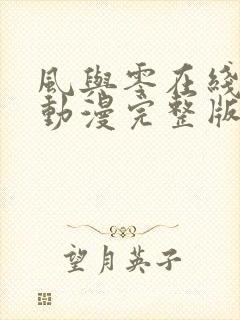 風與零在綫
動漫完整版
望月英子